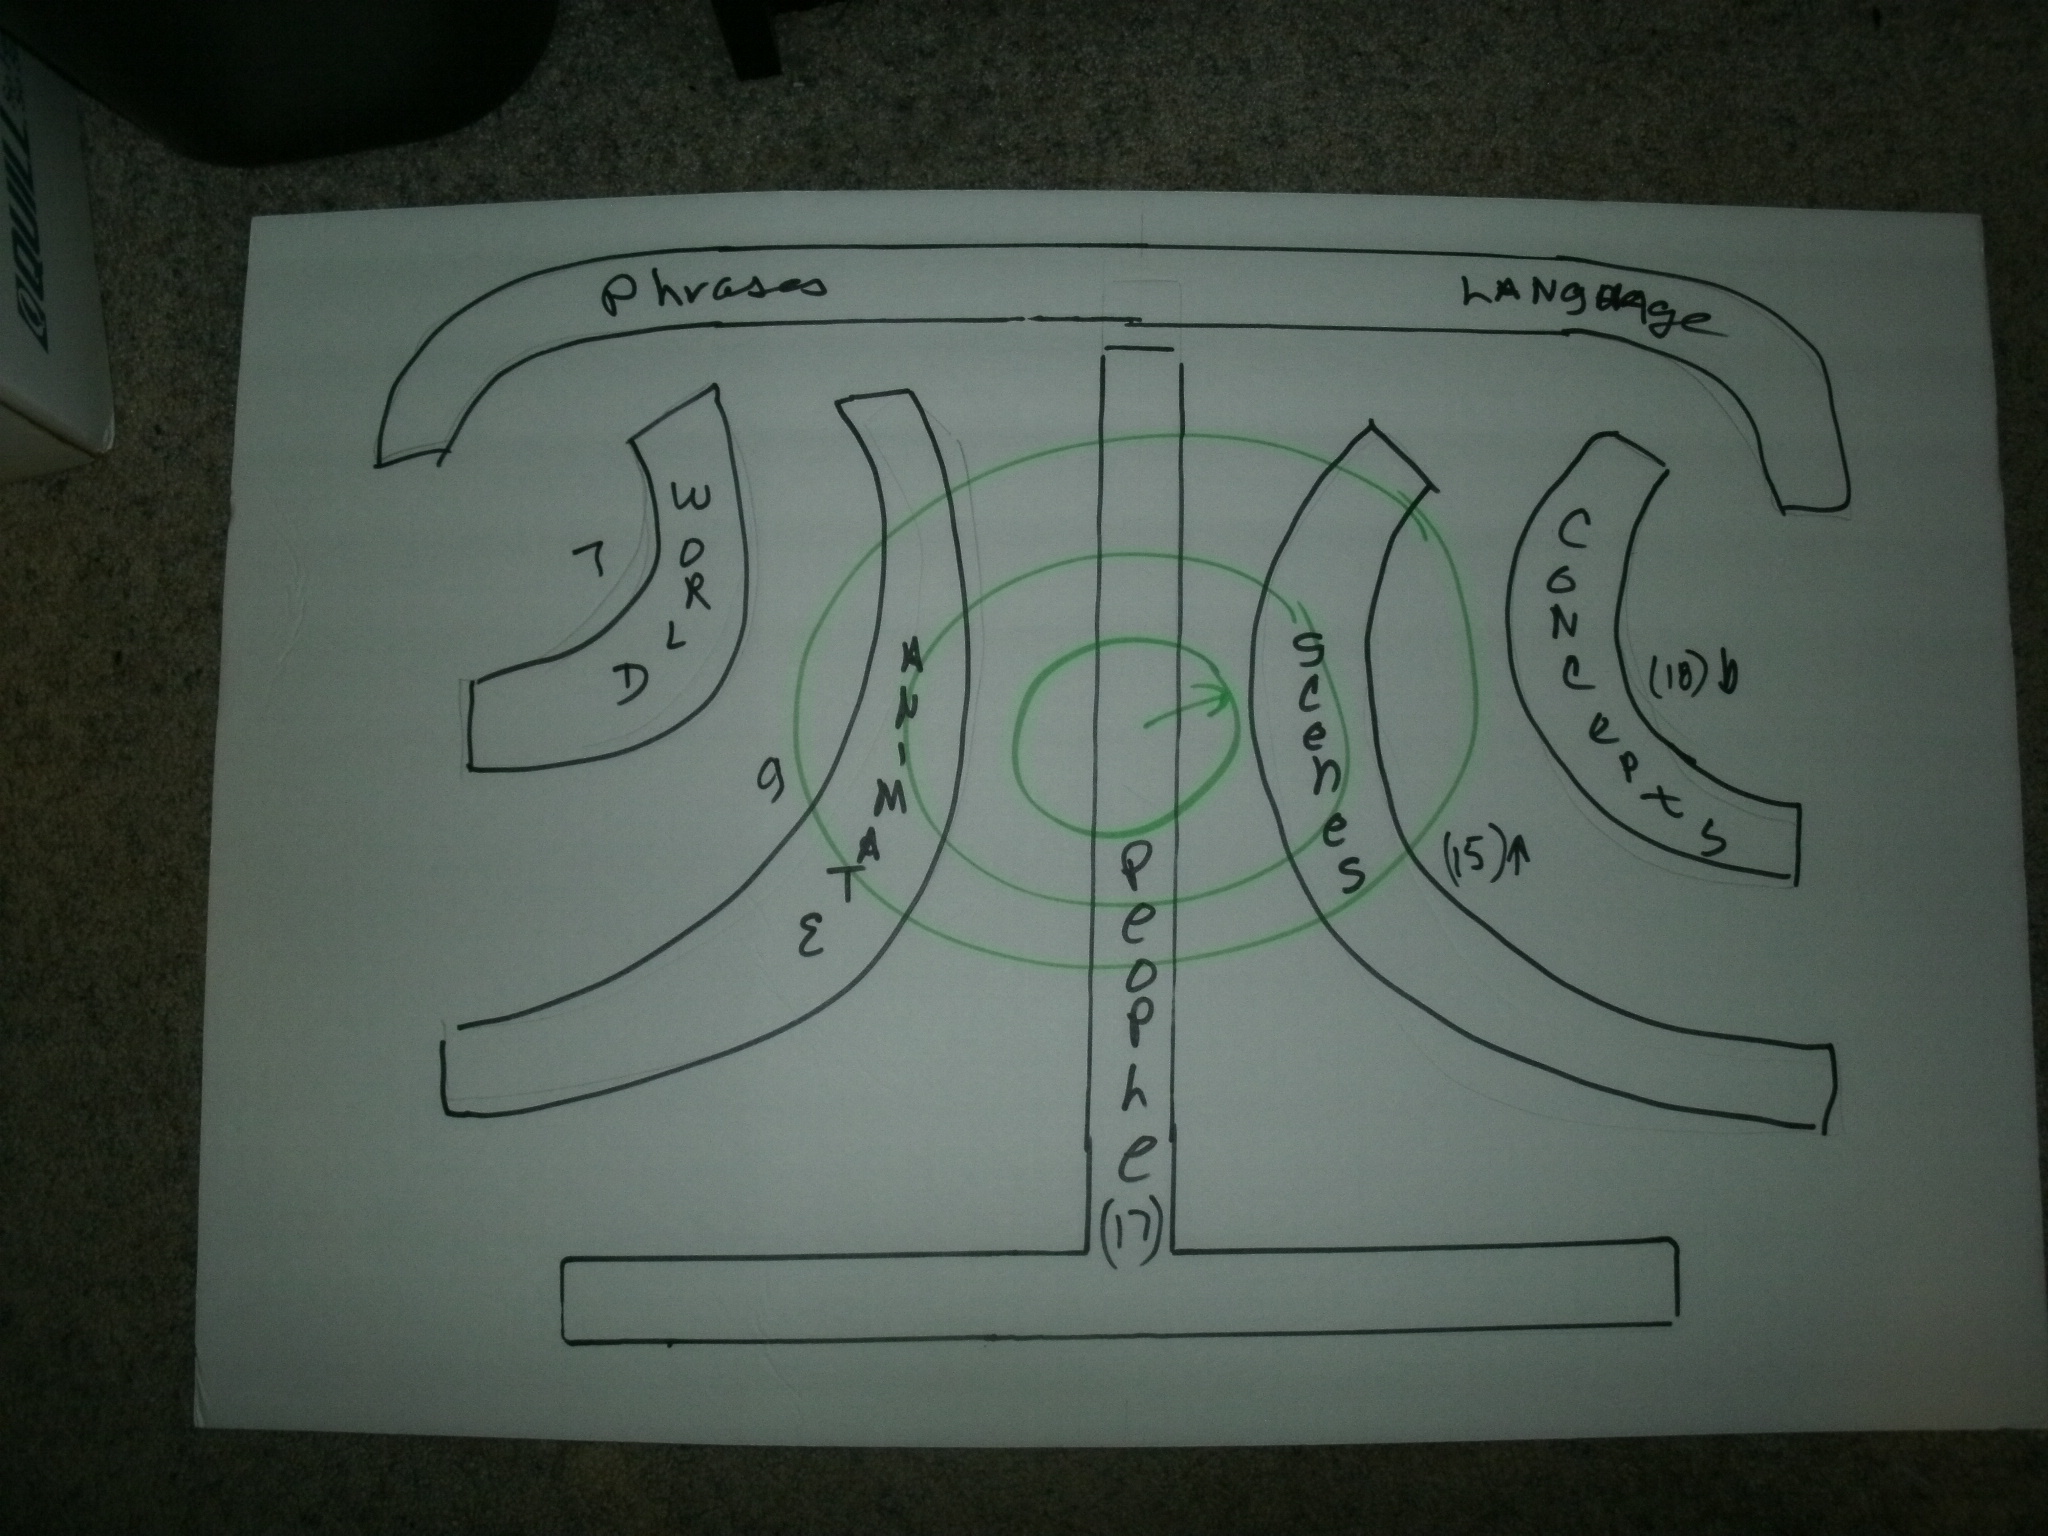 QUILL
Phrases
LANGUAge
WORLD
7
ANIMATE
9
PeoPhe
(17)
SceneS
(15)↑
CONCepts
(18) b